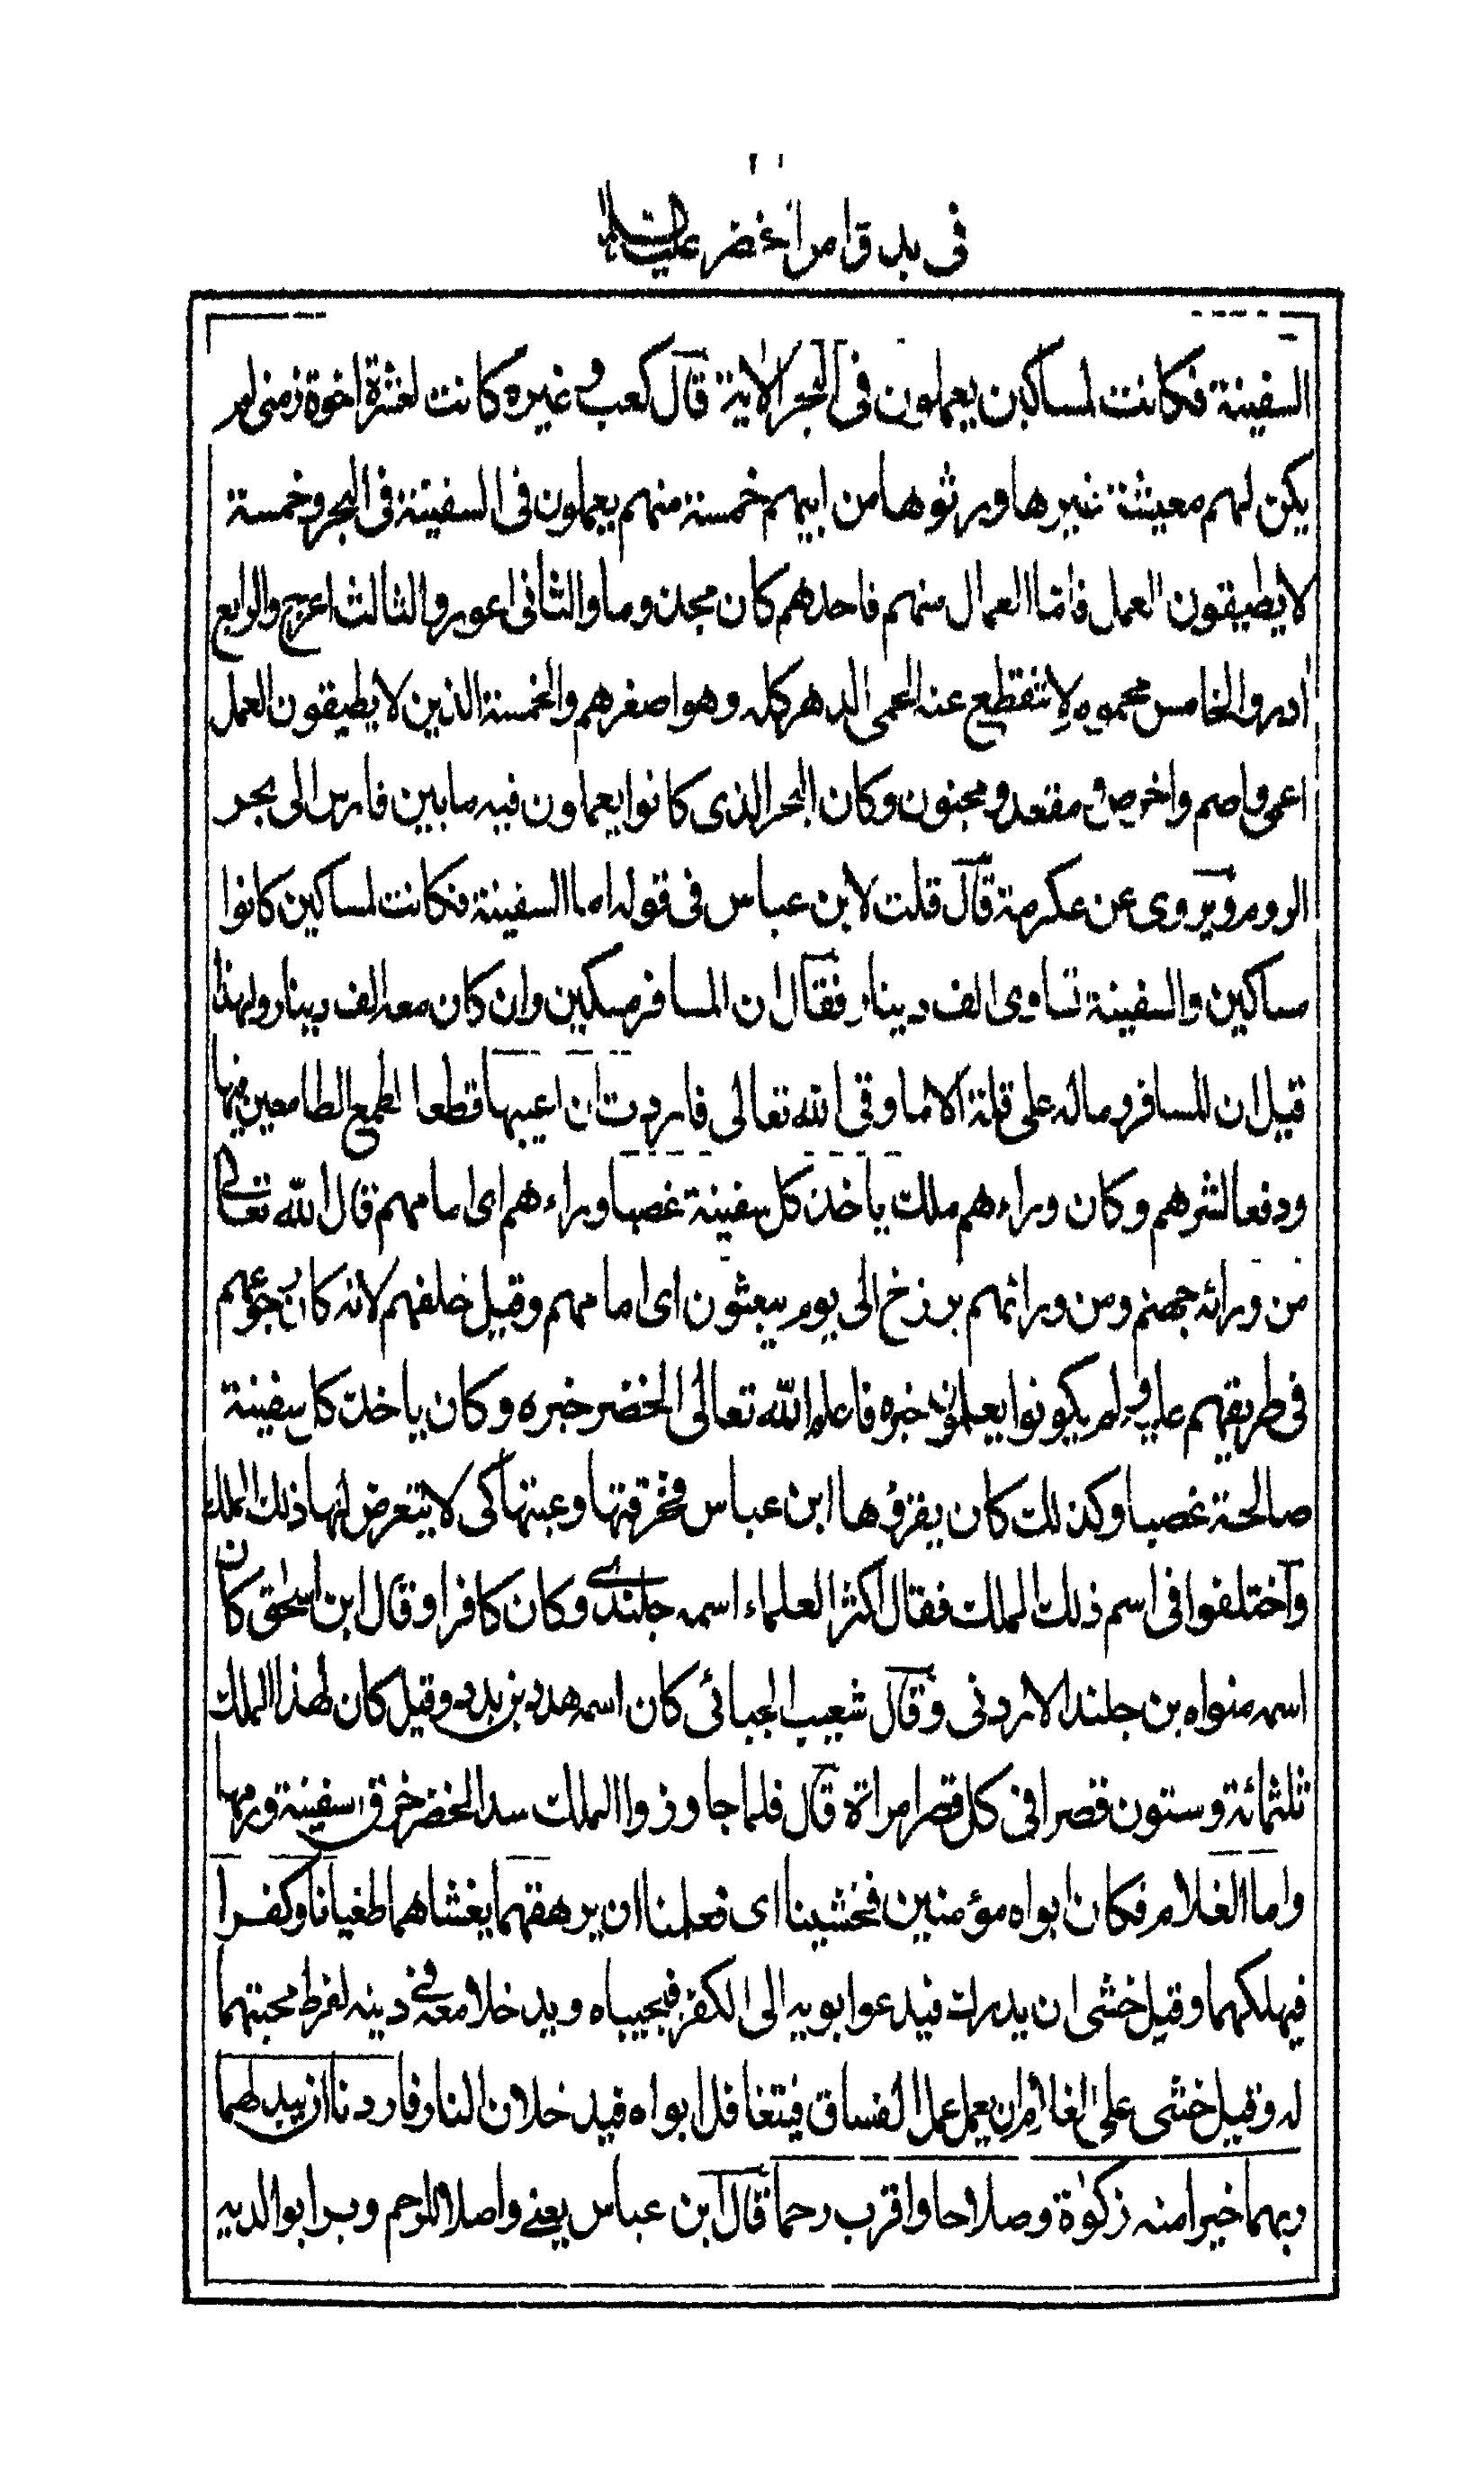 في بدو امر الخضر عليه السلام
السفينة فكانت لمساكين يعملون في البحر الاية قال كعب وغيره كانت لعشرة اخوة زمنى لم
يكن لهم معيشة غيرها ورثوها من ابيهم خمسة منهم يعملون في السفينة في البحر وخمسة
لا يطيقون العمل فاما العمال منهم فاحدهم كان مجذوما والثاني اعور والثالث اعرج والرابع
ادر والخامس محموم لا تنقطع عنه الحمى الدهر كله وهو اصغرهم والخمسة الذين لا يطيقون العمل
اعمى واصم واخرص ومقعد ومجنون وكان البحر الذي كانوا يعملون فيه ما بين فارس الى بحر
الروم ويروى عن عكرمة قال قلت لابن عباس في قوله اما السفينة فكانت لمساكين كانوا
مساكين والسفينة تساوى الف دينار فقال ان المسافر مسكين وان كان معه الف دينار ولهذا
قيل ان المسافر وماله على قلة الا ما وقى الله تعالى فاردت ان اعيبها قطعا لطمع الطامعين فيها
ودفعا لشرهم وكان وراءهم ملك ياخذ كل سفينة غصبا وراءهم اى امامهم قال الله تعالى
من ورائه جهنم ومن ورائهم برزخ الى يوم يبعثون اى امامهم وقيل خلفهم لانه كان رجوعهم
في طريقهم عليه ولم يكونوا يعلمون خبره فاعلم الله تعالى الخضر خبره وكان ياخذ كل سفينة
صالحة غصبا وكذلك كان يقرؤها ابن عباس فخرقتها وعبتها كى لا يتعرض لها ذلك الملك
واختلفوا في اسم ذلك الملك فقال اكثر العلماء اسمه جلندى وكان كافرا وقال ابن اسحق كان
اسمه منواه بن جلند الاردني وقال شعيب الجبائى كان اسمه هدد بن بدد وقيل كان لهذا الملك
ثلثمائة وستون قصرا في كل قصر امراة قال فلما جاوزوا الملك سد الخضر خرق السفينة ورمها
واما الغلام فكان ابواه مؤمنين فخشينا اى فعلمنا ان يرهقهما يغشاهما طغيانا وكفرا
فيهلكهما وقيل خشى ان يدرك فيدعوا ابويه الى الكفر فيجيباه ويدخلا معه في دينه لفرط محبتهما
له وقيل خشى على الغلام ان يعمل عمل الفساق فيتغافل ابواه فيدخلان النار فاردنا ان يبدلهما
ربهما خيرا منه زكوة وصلاحا واقرب رحما قال ابن عباس يعنى واصلا للرحم وبرا بوالديه